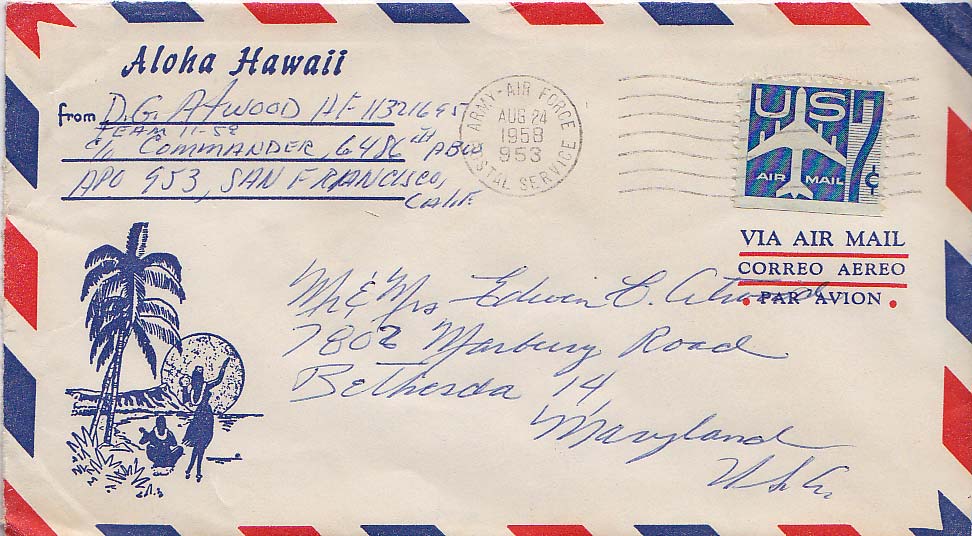 Aloha Hawaii
from D.G. Atwood AF 11321695
TEAM 11-58
c/o COMMANDER, 6486TH ABW
APO 953, SAN FRANCISCO,
CALIF
ARMY-AIR FORCE
AUG 24
1958
953
POSTAL SERVICE
US 7¢
AIR MAIL
VIA AIR MAIL
CORREO AEREO
PAR AVION
Mr & Mrs Edwin C. Atwood
7802 Marbury Road
Bethesda 14,
Maryland
U.S.A.